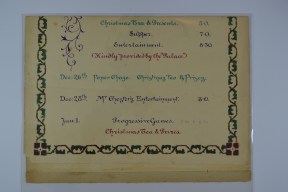 Christmas Tree & Presents. 5.0.
Supper. 7.0.
Entertainment. 8.30
(Kindly provided by the Palace)
Dec: 26th Paper Chase. Christmas Tea & Prizes.
Dec: 28th Mr Chester's Entertainment. 8.0.
Jan 1. Progressive Games.
Christmas Tea & Prizes.